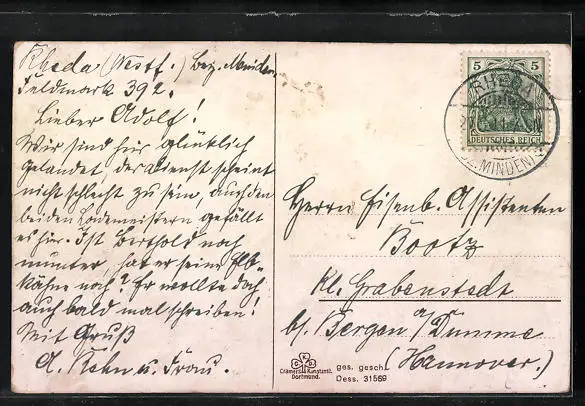 Rheda (Westf.) Bez. Minden,
Feldmark 392.
Lieber Adolf!
Wir sind hier glücklich
gelandet, der Dienst scheint
nicht schlecht zu sein, auch den
beiden Lademeistern gefällt
es hier. Ist Berthold noch
munter, hat er seine Elb-
kähne noch? Er wollte doch
auch bald mal schreiben!
Mit Gruß
A. Kehn u. Frau.
5 5
DEUTSCHES REICH
RHEDA
(BZ. MINDEN)
Herrn Eisenb. Assistenten
Bootz
Kl. Grabenstedt
b/ Bergen a/ Dumme
(Hannover.)
CKD
Cramers Kunstanst.
Dortmund.
ges. gesch.
Dess. 31569